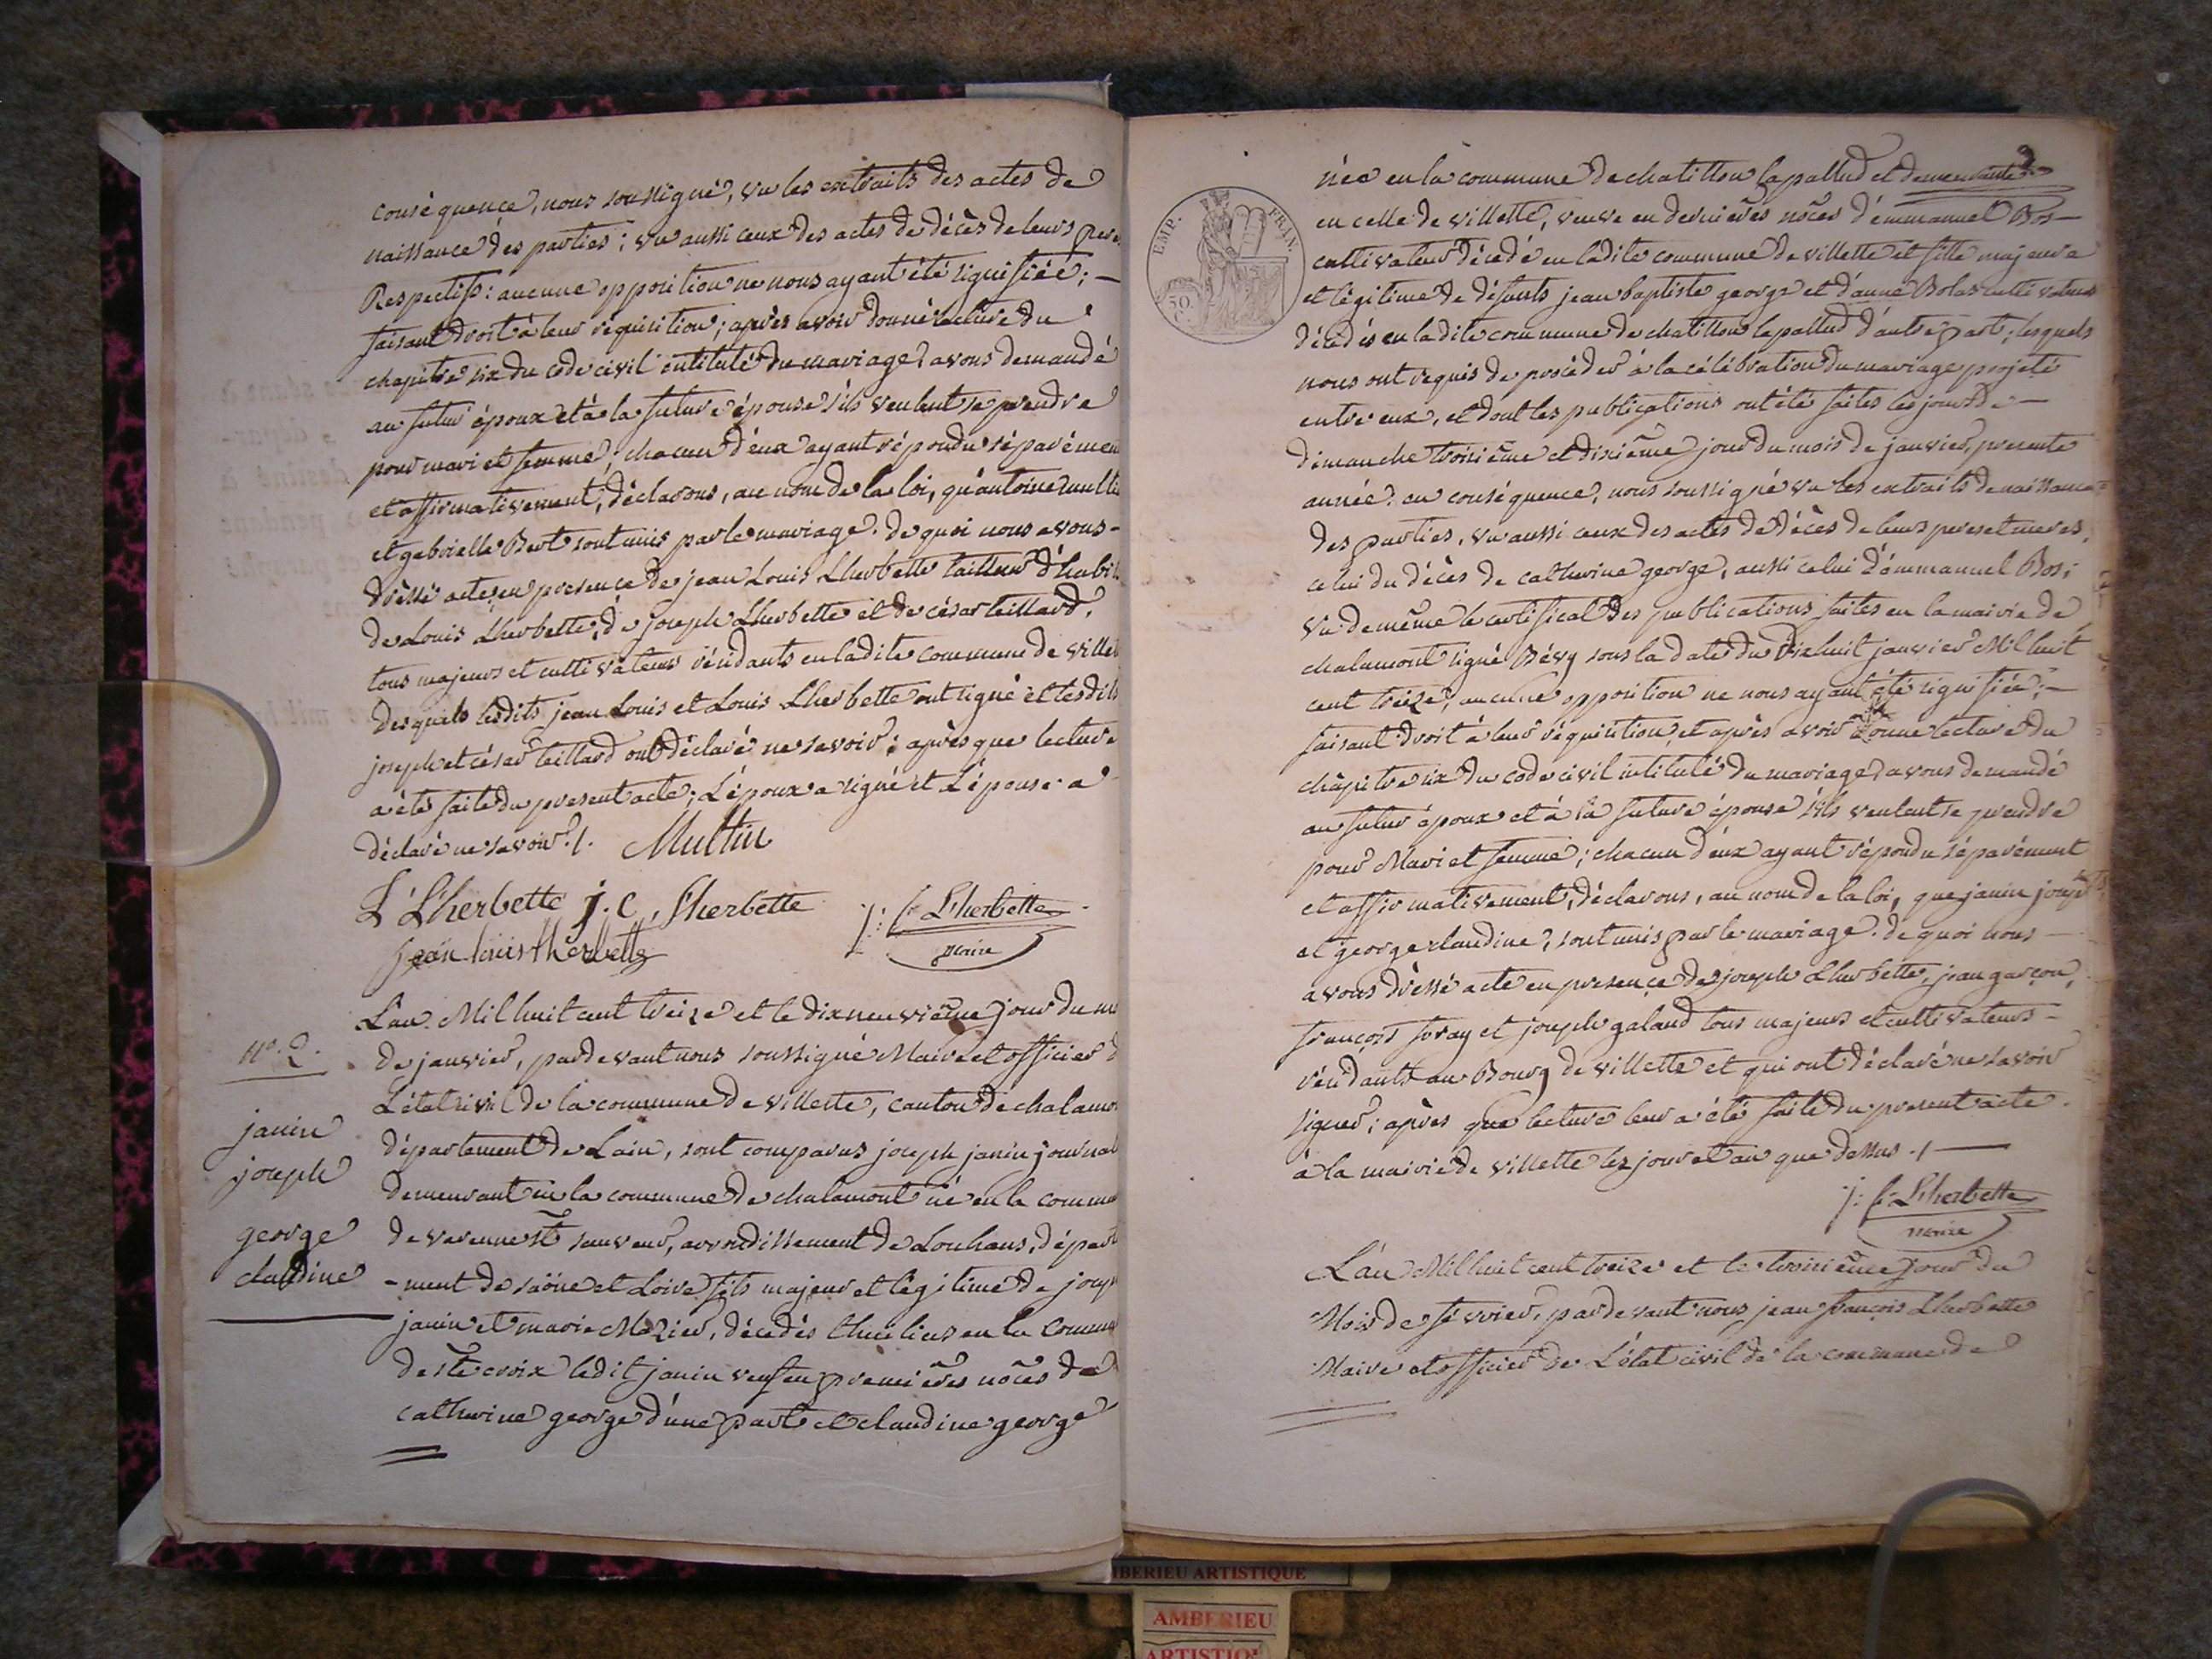 conséquence, nous soussigné, vu les extraits des actes de
naissance des parties; vu aussi ceux des actes de décès de leurs peres
Respectifs: aucune opposition ne nous ayant été signifiée; —
faisant droit à leur réquisition; après avoir donné lecture du
chapitre six du code civil intitulé du mariage, avons demandé
au futur époux et à la future épouse s'ils veulent se prendre
pour mari et femme; chacun d'eux ayant répondu séparémen
et affirmativement, déclarons, au nom de la loi, qu'antoine
et gabrielle Bert sont unis par le mariage. de quoi nous avons -
dressé acte, en presence de jean Louis Lherbette tailleur d'habit
de Louis Lherbette, de joseph Lherbette et de césar teillard,
tous majeurs et cultivateurs résidants en ladite commune de villet
desquels lesdits jean Louis et Louis Lherbette ont signé et lesdits
joseph et césar teillard ont déclaré ne savoir; après que lecture
a été faite du present acte; L'époux a signé et L'épouse a
déclaré ne savoir ./. Multin
L Lherbette j. c. Lherbette
jean louis lherbette
j: f. Lherbette
maire
n°. 2.
janin
joseph
george
claudine
L'an Mil huit cent treize et le dixneuvième jour du mo
de janvier, pardevant nous soussigné Maire et officier d
L'état civil de la commune de villette, canton de chalamo
département de Lain, sont comparus joseph janin journal
demeurant en la commune de chalamont né en la commu
de varenne st sauveur, arrondissement de Louhans, départ
-ment de saône et Loire fils majeur et légitime de josep
janin et marie Mazier, décédés en la commu
de ste croix ledit janin veuf en premières noces de
catherine george d'une part et claudine george
EMP. FRAN.
50
3
née en la commune de chatillon lapallud et demeurante
en celle de villette, veuve en dernières noces d'emmanuel Bos —
cultivateur décédé en ladite commune de villette et fille majeure
et légitime de défunts jean baptiste george et d'anne Bolas cultivateurs
décédés en ladite commune de chatillon lapallud d'autre part; lesquels
nous ont requis de procéder à la célébration du mariage projeté
entre eux, et dont les publications ont été faites les jours de —
dimanche troisième et dixième jour du mois de janvier, presente
année. en conséquence, nous soussigné vu les extraits de naissance
des parties, vu aussi ceux des actes de décès de leurs peres et meres,
celui du décès de catherine george, aussi celui d'emmanuel Bos;
vu de même le certificat des publications faites en la mairie de
chalamont signé Bévy sous la date du dixhuit janvier Mil huit
cent treize; aucune opposition ne nous ayant été signifiée; —
faisant droit à leur réquisition, et après avoir donné lecture du
chapitre six du code civil intitulé du mariage, avons demandé
au futur époux et à la future épouse s'ils veulent se prendre
pour Mari et femme; chacun d'eux ayant répondu séparément
et affirmativement, déclarons, au nom de la loi, que janin joseph
et george claudine, sont unis par le mariage. de quoi nous —
avons dressé acte en presence de joseph Lherbette, jean garçon,
françois foray et joseph galand tous majeurs et cultivateurs -
résidants au Bourg de villette et qui ont déclaré ne savoir
signer; après que lecture leur a été faite du present acte
à la mairie de villette les jour et an que dessus ./ —
j: f. Lherbette
maire
L'an Mil huit cent treize et le troisième jour du
Mois de fevrier, pardevant nous jean françois Lherbette
Maire et officier de L'état civil de la commune de
IBERIEU ARTISTIQUE
AMBERIEU
ARTISTIQ